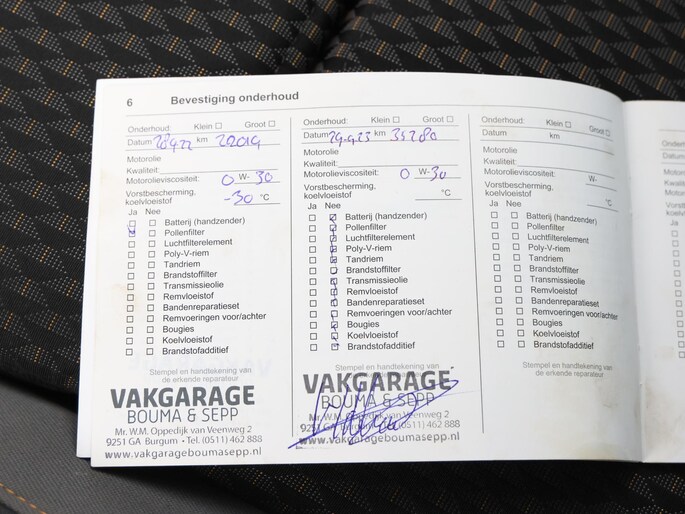 6 Bevestiging onderhoud
Onderhoud: Klein ☐ Groot ☐
Datum 28922 km 22019
Motorolie
Kwaliteit:
Motorolieviscositeit: 0 W- 30
Vorstbescherming,
koelvloeistof -30 °C
Ja Nee
Batterij (handzender)
Pollenfilter
Luchtfilterelement
Poly-V-riem
Tandriem
Brandstoffilter
Transmissieolie
Remvloeistof
Bandenreparatieset
Remvoeringen voor/achter
Bougies
Koelvloeistof
Brandstofadditief
Stempel en handtekening van
de erkende reparateur
VAKGARAGE
BOUMA & SEPP
Mr. W.M. Oppedijk van Veenweg 2
9251 GA Burgum • Tel. (0511) 462 888
www.vakgarageboumasepp.nl
Onderhoud: Klein ☐ Groot ☐
Datum 29-9-23 km 35280
Motorolie
Kwaliteit:
Motorolieviscositeit: 0 W-30
Vorstbescherming,
koelvloeistof °C
Ja Nee
Batterij (handzender)
Pollenfilter
Luchtfilterelement
Poly-V-riem
Tandriem
Brandstoffilter
Transmissieolie
Remvloeistof
Bandenreparatieset
Remvoeringen voor/achter
Bougies
Koelvloeistof
Brandstofadditief
Stempel en handtekening van
de erkende reparateur
VAKGARAGE
BOUMA & SEPP
Mr. W.M. Oppedijk van Veenweg 2
9251 GA Burgum (0511) 462 888
www.vakgarageboumasepp.nl
Onderhoud: Klein ☐ Groot ☐
Datum km
Motorolie
Kwaliteit:
Motorolieviscositeit: W-
Vorstbescherming,
koelvloeistof °C
Ja Nee
Batterij (handzender)
Pollenfilter
Luchtfilterelement
Poly-V-riem
Tandriem
Brandstoffilter
Transmissieolie
Remvloeistof
Bandenreparatieset
Remvoeringen voor/achter
Bougies
Koelvloeistof
Brandstofadditief
Stempel en handtekening van
de erkende reparateur